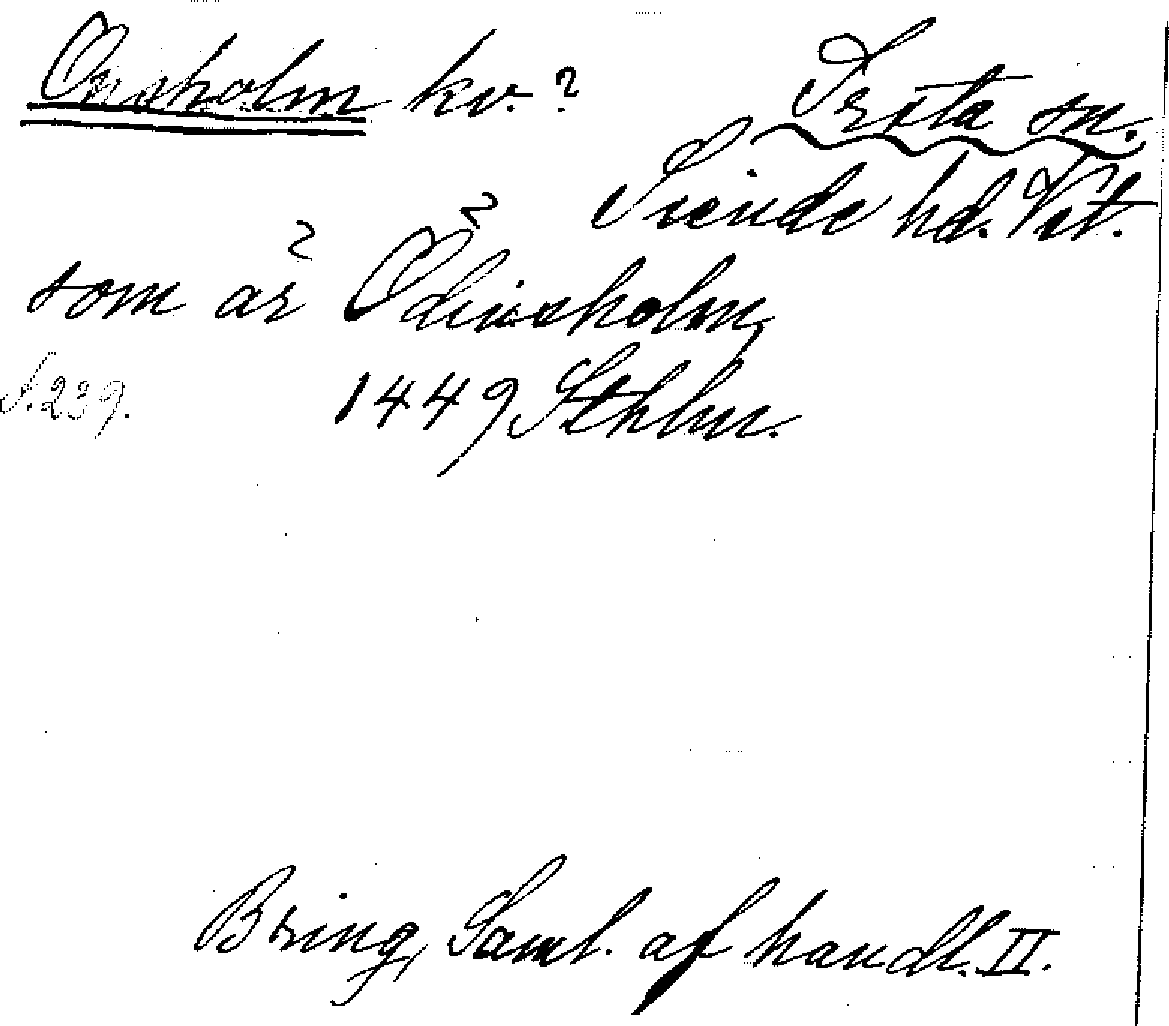 Onsholm kv.?
Irsta sn.
Siende hd. Vst.
som är Odinsholm,
S.239. 1449 Sthlm.
Bring, Saml. af handl. II.